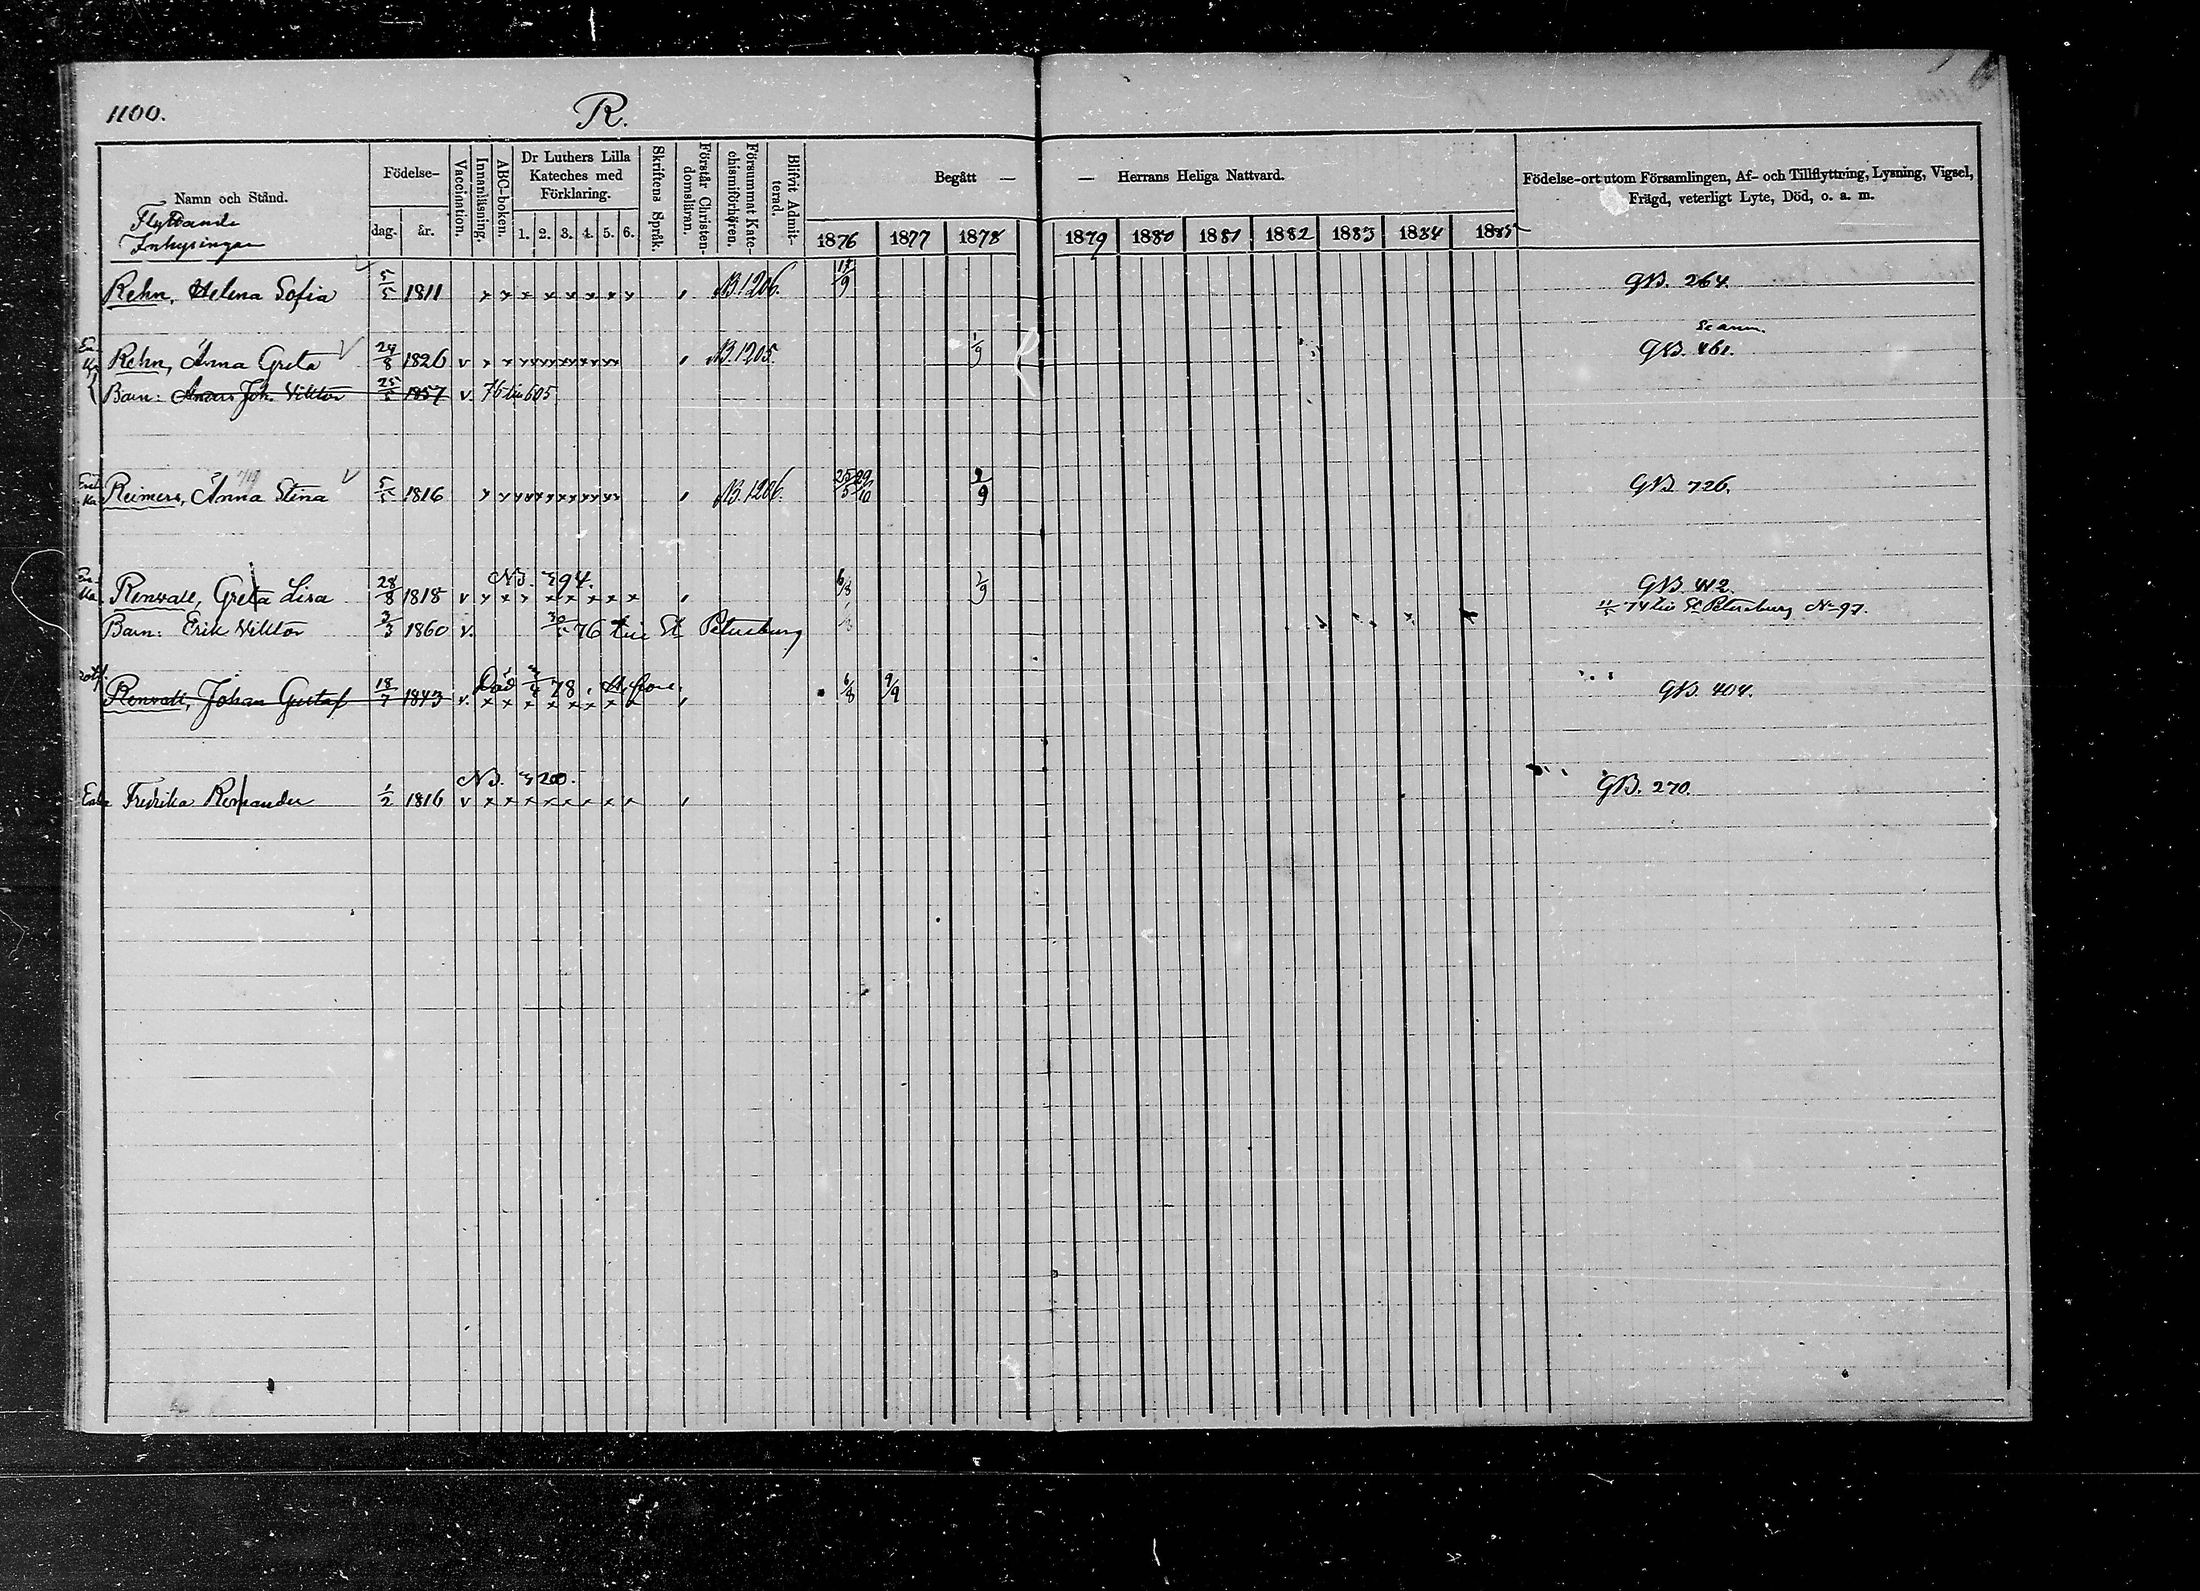 1100.
R.
Namn och Stånd.
Flyttande
Inhysingar
Födelse-
dag.
år.
Vaccination.
Innanläsning.
ABC-boken.
Dr Luthers Lilla
Kateches med
Förklaring.
1. 2. 3. 4. 5. 6.
Skriftens Språk.
Förstår Christen-
domsläran.
Försummat Kate-
chismiförhören.
Blifvit Admit-
terad.
Begått —
1876 1877 1878
— Herrans Heliga Nattvard.
1879 1880 1881 1882 1883 1884 1885
Födelse-ort utom Församlingen, Af- och Tillflyttning, Lysning, Vigsel,
Frägd, veterligt Lyte, Död, o. a. m.
Rehn, Helena Sofia 5/5 1811 B. 1206. 17/9 GB. 264.
Rehn, Anna Greta 24/8 1826 v B. 1205. 1/9 GB. 461.
Barn: Anders Joh. Viktor 25/5 1857 v. 76 till 605
Reimers, Anna Stina 5/5 1816 B. 1206. 25/5 29/10 2/9 GB 726.
NB. 394.
Renvall, Greta Lisa 28/8 1818 v 6/8 2/9 GB 412.
74 till St Petersburg No 97.
Barn: Erik Viktor 3/3 1860 v. 30/5 76 till St Petersburg
Död 78.
Renvall, Johan Gustaf 18/7 1843 v. 6/8 9/9 GB. 404.
NB. 320.
Enka Fredrika Renlander 1/2 1816 v GB. 270.